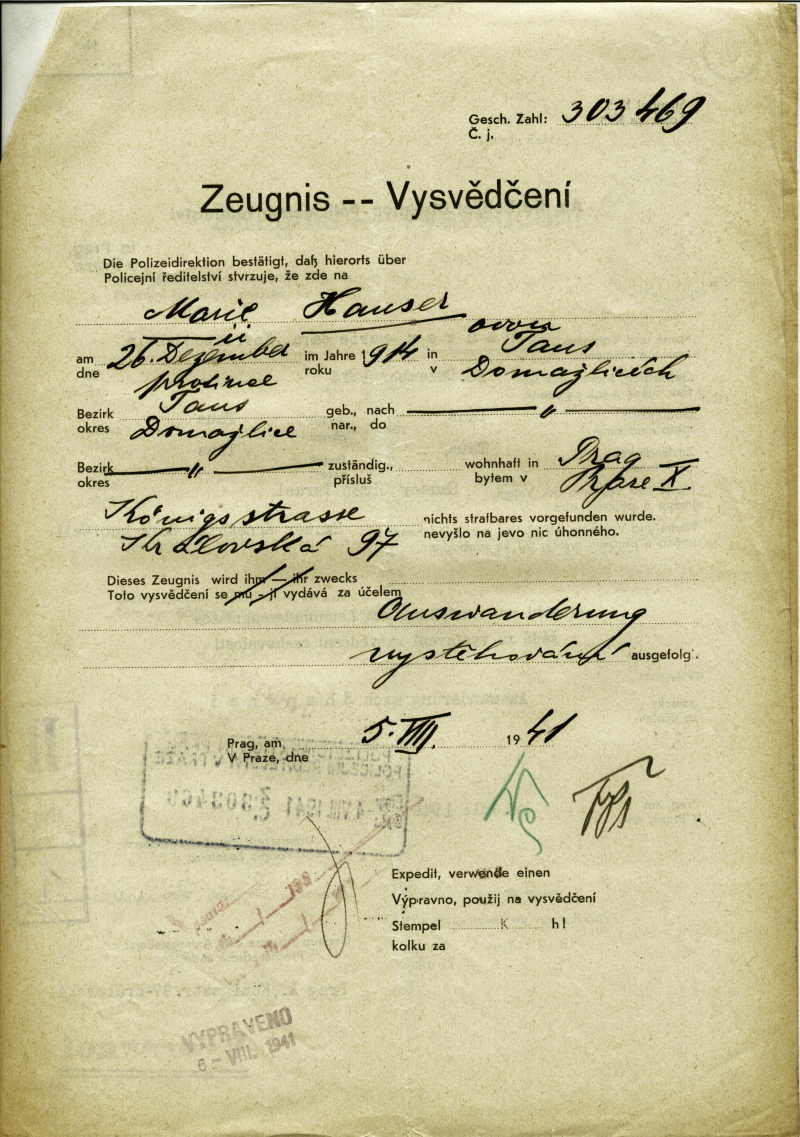 Gesch. Zahl: 303469
Č. j.
Zeugnis -- Vysvědčení
Die Polizeidirektion bestätigt, daß hierorts über
Policejní ředitelství stvrzuje, že zde na
Marie Hauser
am 26. Dezember im Jahre 1914 in Taus
dne prosince roku v Domažlicích
Bezirk Taus geb., nach — " —
okres Domažlice nar., do
Bezirk — " — zuständig., wohnhaft in Prag
okres přísluš bytem v Praze X
Königsstrasse nichts strafbares vorgefunden wurde.
Královská 97 nevyšlo na jevo nic úhonného.
Dieses Zeugnis wird ihm — ihr zwecks
Toto vysvědčení se mu - jí vydává za účelem
Auswanderung
vystěhování ausgefolgt.
Prag, am 5. VIII. 1941
V Praze, dne
POLICEJNÍ ŘEDITELSTVÍ V PRAZE
4 VIII 1941
Č. 303469
Expedit, verwende einen
Výpravno, použij na vysvědčení
Stempel K hl
kolku za
VYPRAVENO
6 - VIII. 1941